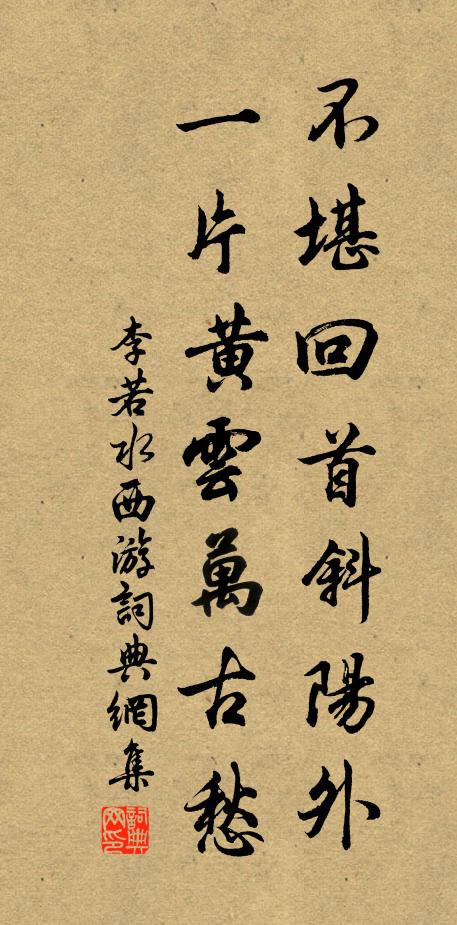 不堪回首斜陽外
一片黃雲萬古愁
李若水西游詞典網集
詞典网印